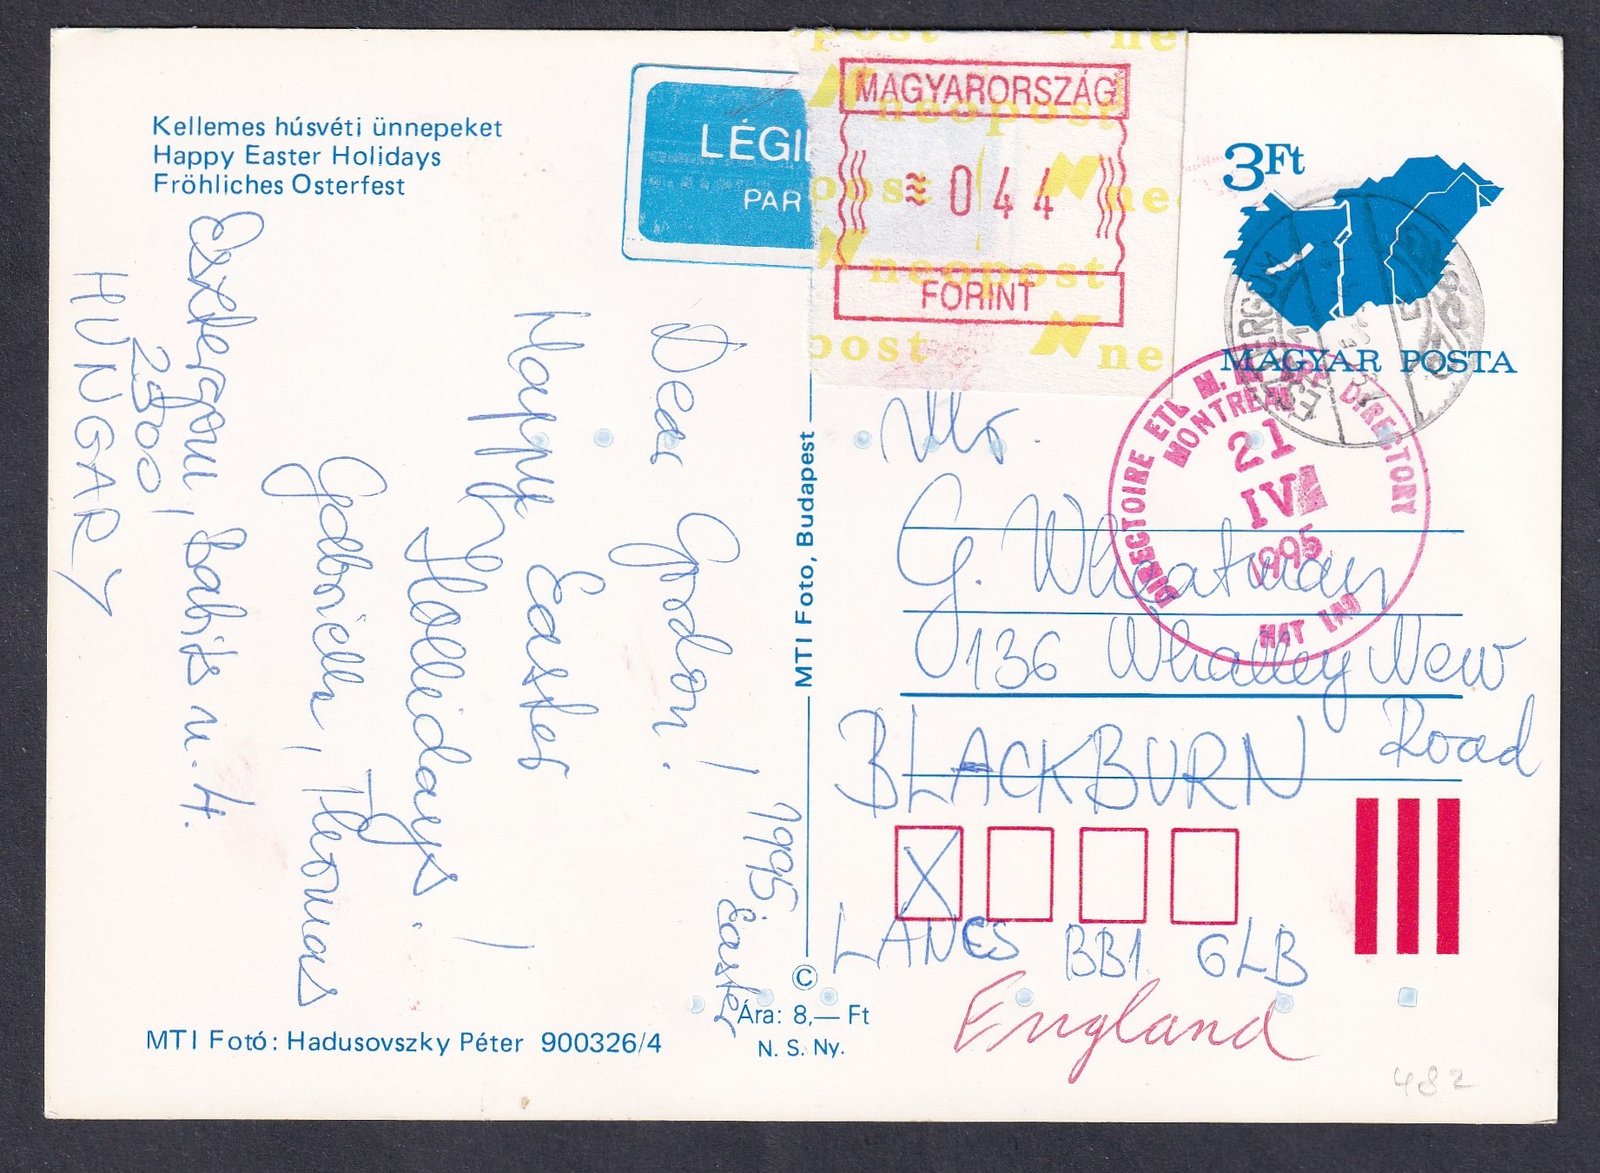 Kellemes húsvéti ünnepeket
Happy Easter Holidays
Fröhliches Osterfest
LÉGI
PAR
neopost
MAGYARORSZÁG
≈044
FORINT
3Ft
MAGYAR POSTA
ESZTERGOM
DIRECTOIRE ETL M. DIRECTORY
MONTREAL
21
IV
1995
Mr.
G. Wheatman
136 Whalley New
Road
BLACKBURN
X
LANCS BB1 6LB
England
1995 Easter
Dear Gordon!
Happy Easter
Hollidays!
Gabriella, Thomas
Esztergom, Babits u. 4.
2500
HUNGARY
MTI Foto, Budapest
©
Ára: 8,— Ft
N. S. Ny.
MTI Fotó: Hadusovszky Péter 900326/4
482